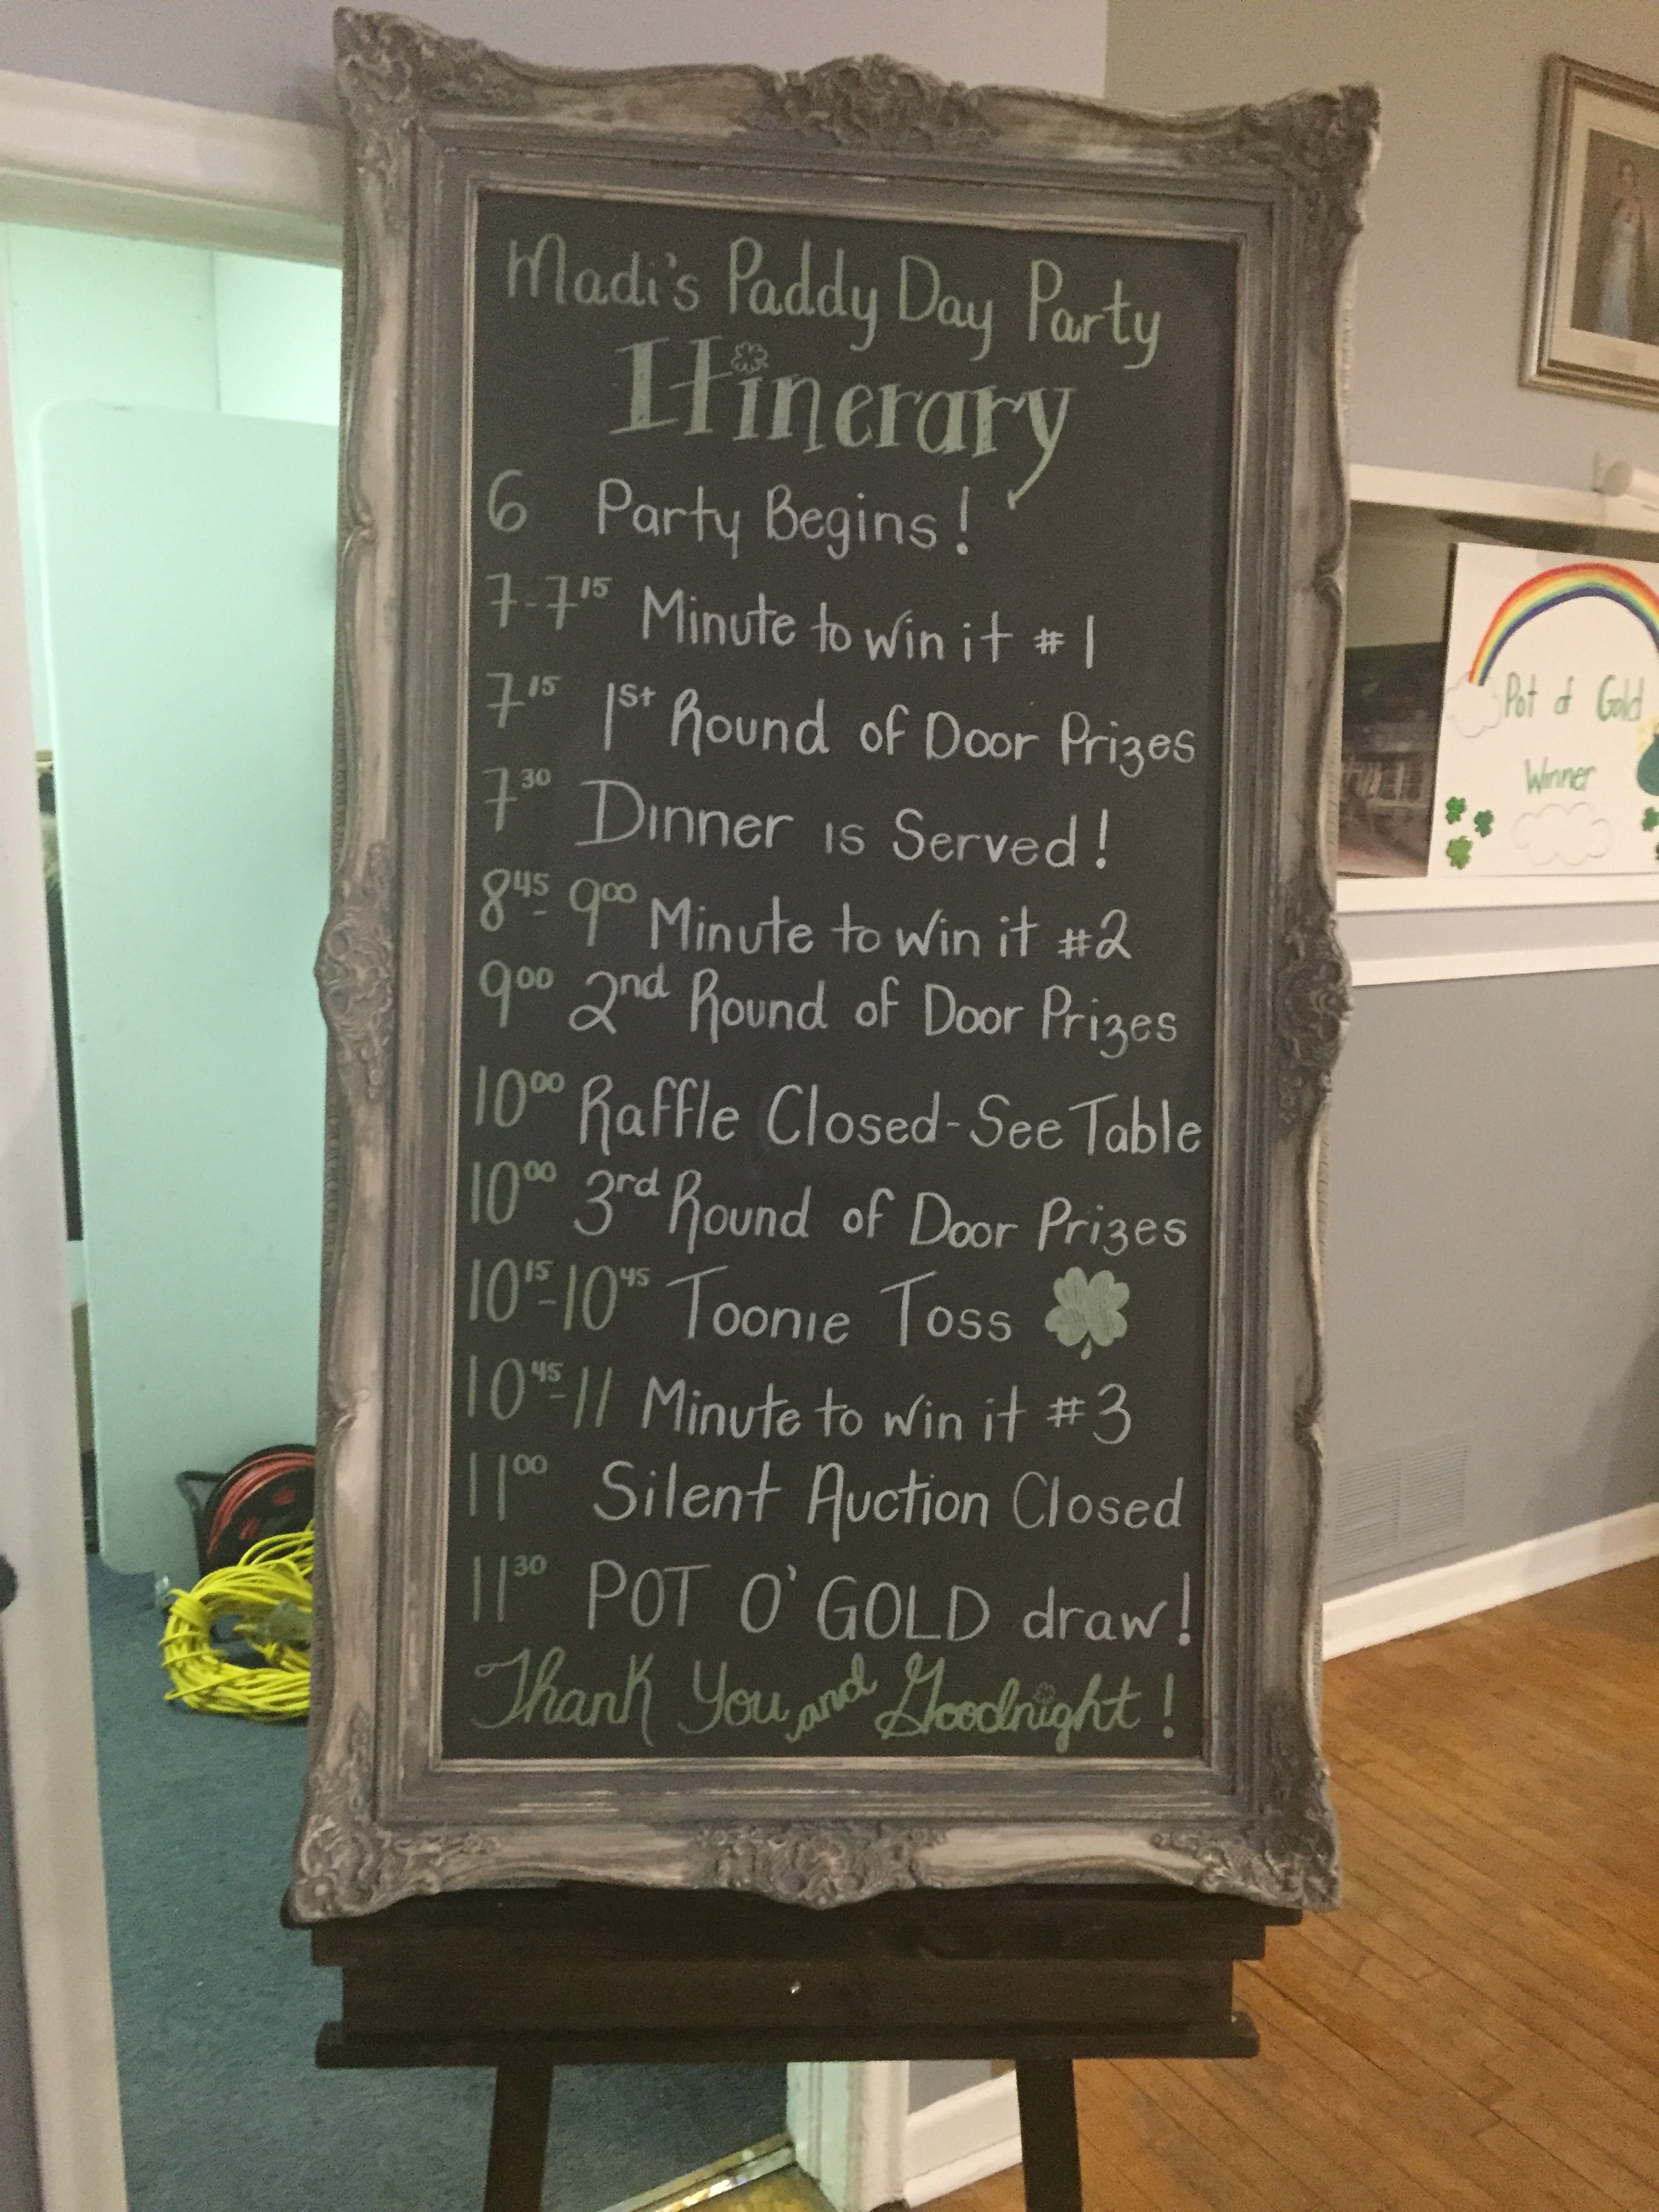 Madi's Paddy Day Party
Itinerary
6 Party Begins!
7-7 15 Minute to win it #1
7 15 1st Round of Door Prizes
7 30 Dinner is Served!
8 45 - 9 00 Minute to win it #2
9 00 2nd Round of Door Prizes
10 00 Raffle Closed-See Table
10 00 3rd Round of Door Prizes
10 15 - 10 45 Toonie Toss
10 45 - 11 Minute to win it #3
11 00 Silent Auction Closed
11 30 POT O' GOLD draw!
Thank You and Goodnight!
Pot of Gold
Winner